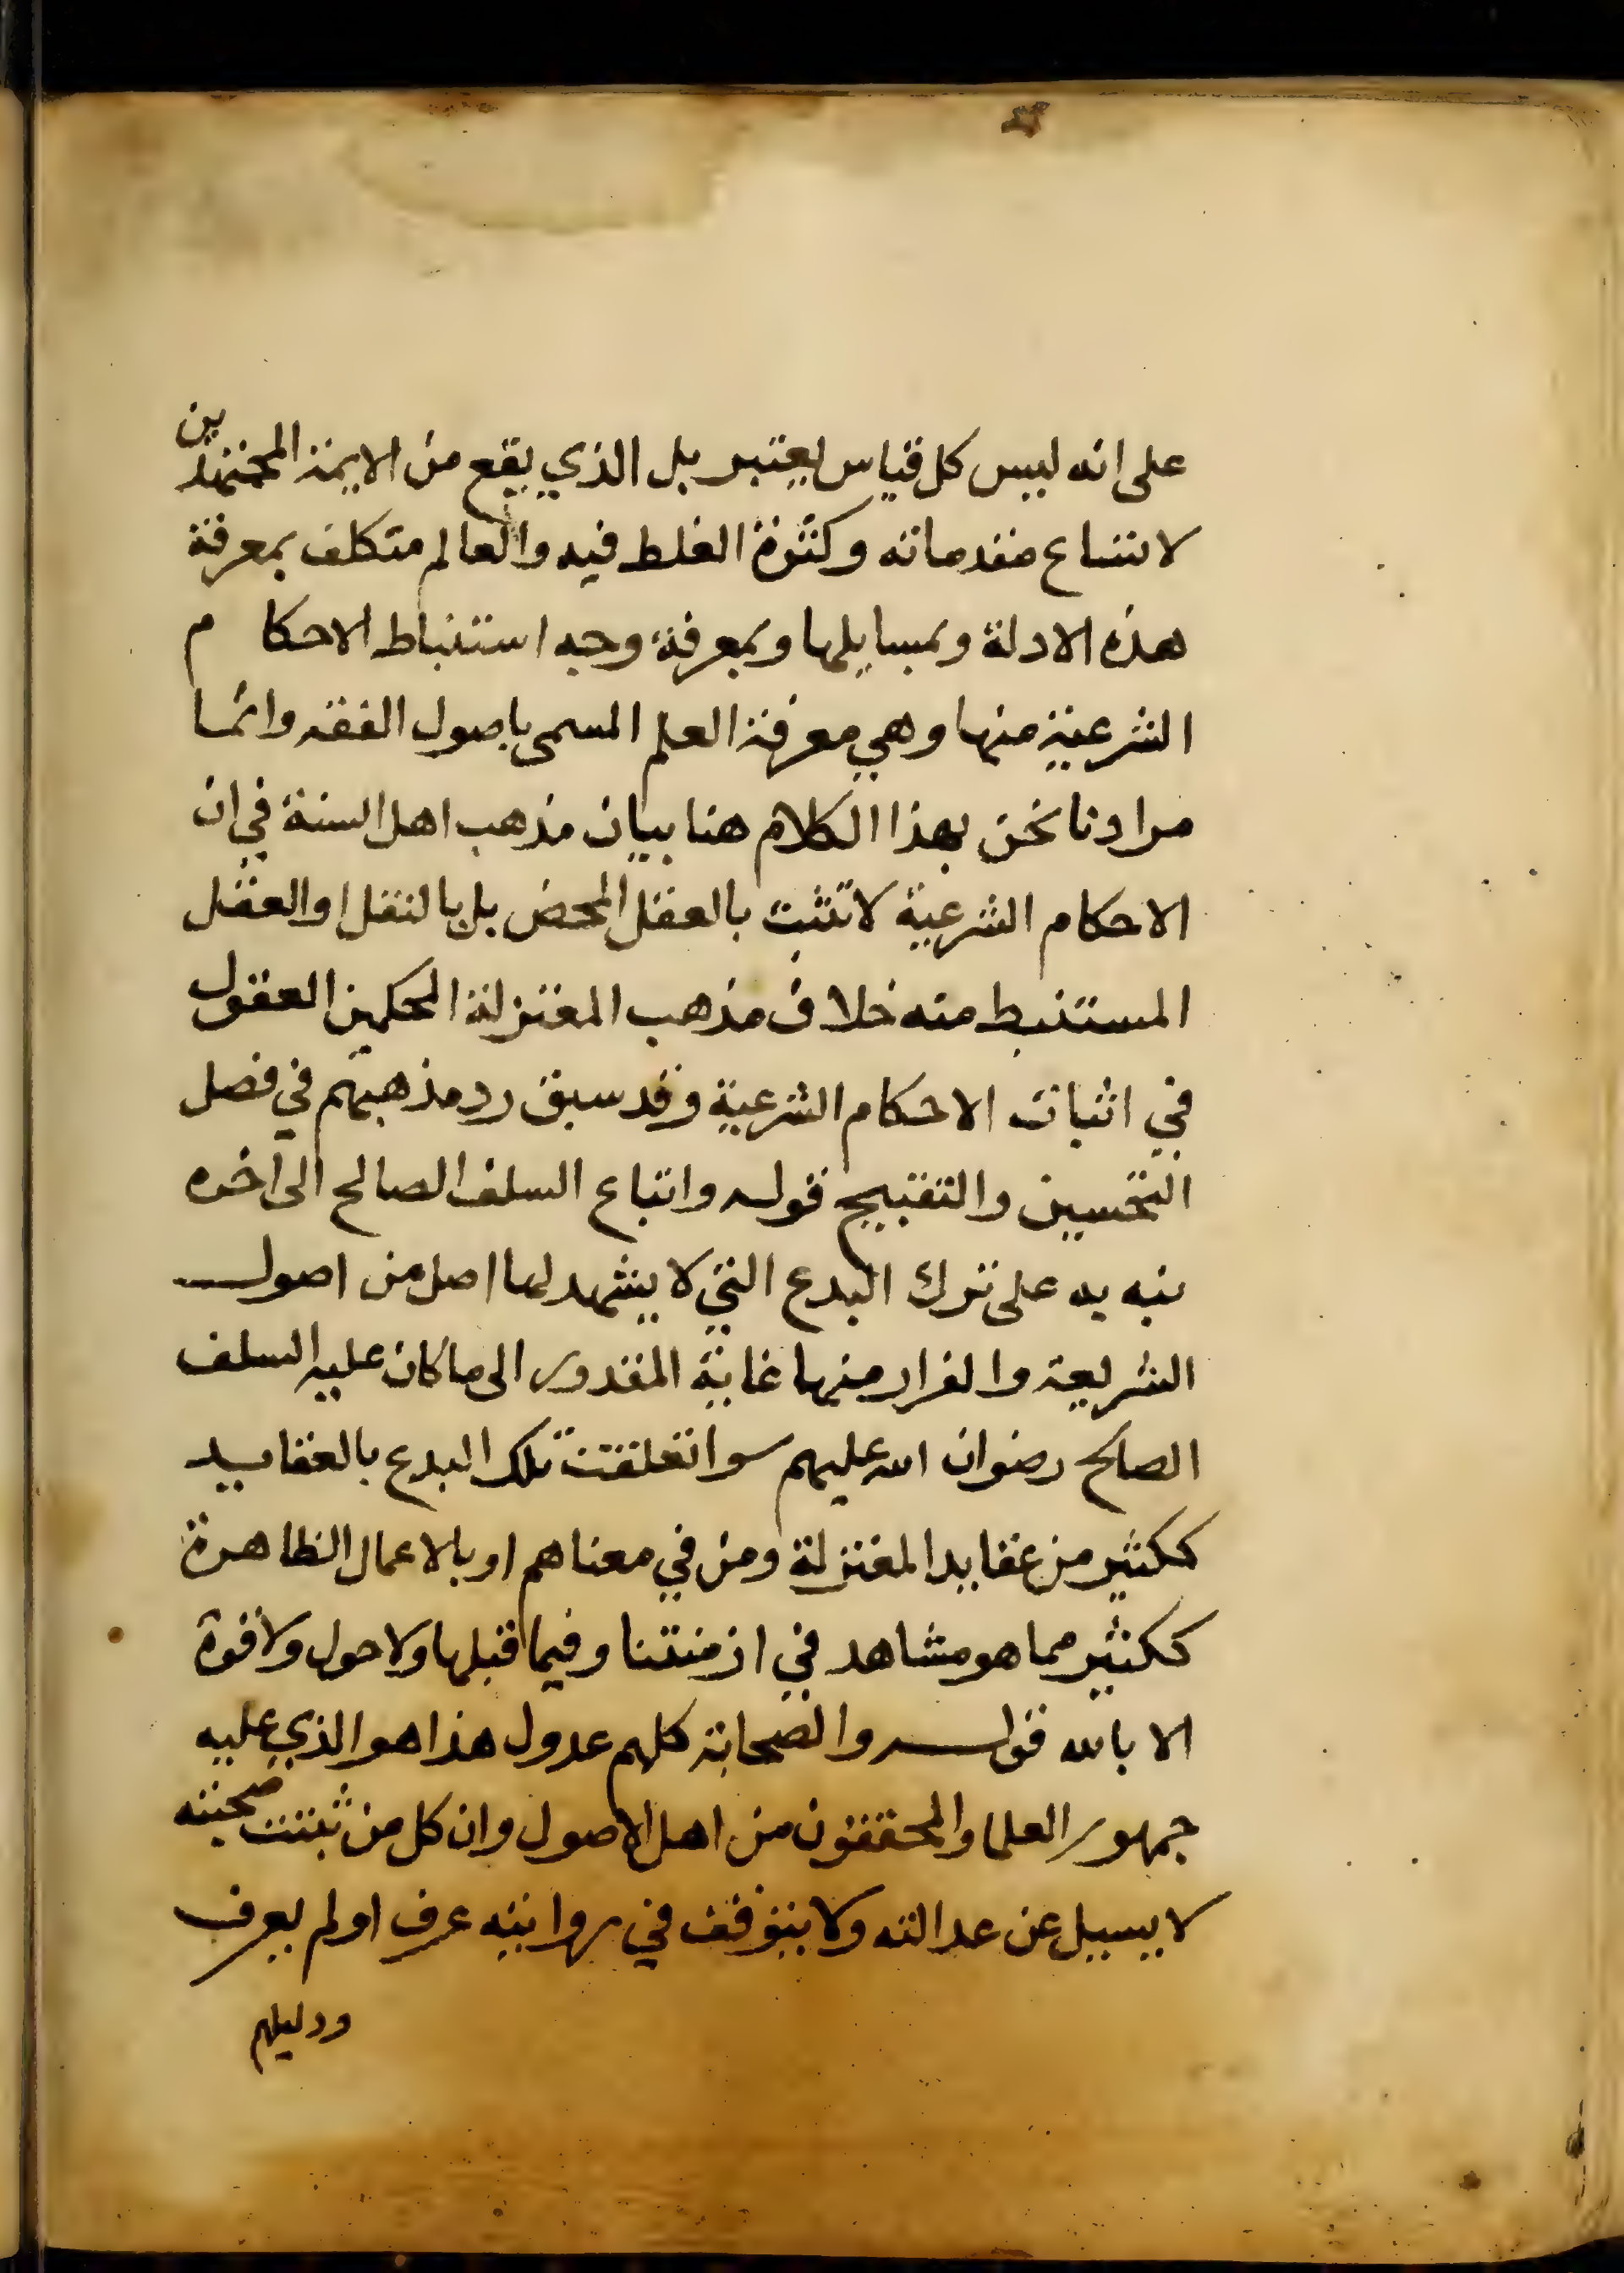 على انه ليس كل قياس يعتبر بل الذي يقع من الايمة المجتهدين
لاتساع مقدماته وكثرة الغلط فيه والعالم متكلف بمعرفة
هذه الادلة وبمسايلها وبمعرفة وجه استنباط الاحكام
الشرعية منها وهي معرفة العلم المسمى باصول الفقه وانما
مرادنا نحن بهذا الكلام هنا بيان مذهب اهل السنة في ان
الاحكام الشرعية لا تثبت بالعقل المحض بل بالنقل او العقل
المستنبط منه خلاف مذهب المعتزلة المحكمين العقول
في اثبات الاحكام الشرعية وقد سبق رد مذهبهم في فصل
التحسين والتقبيح قوله واتباع السلف الصالح الى اخره
نبه به على ترك البدع التي لا يشهد لها اصل من اصول
الشريعة والفرار منها غاية المقدور الى ما كان عليه السلف
الصالح رضوان الله عليهم سوا تعلقت تلك البدع بالعقايد
ككثير من عقايد المعتزلة ومن في معناهم او بالاعمال الظاهرة
ككثير مما هو مشاهد في ازمنتنا وفيما قبلها ولا حول ولا قوة
الا بالله قوله والصحابة كلهم عدول هذا هو الذي عليه
جمهور العلما والمحققون من اهل الاصول وان كل من ثبتت صحبته
لا يسيل عن عدالته ولا يتوقف في روايته عرف او لم يعرف
ودليلهم